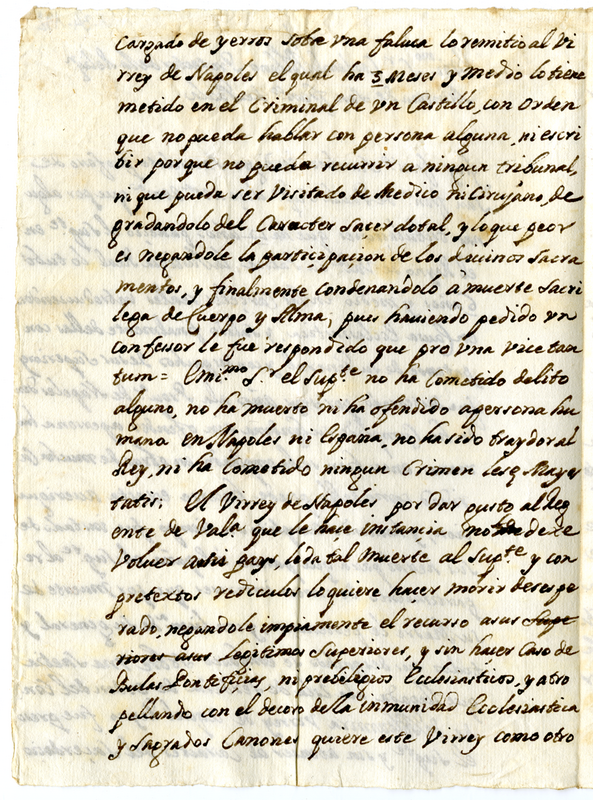 Cargado de yerros sobre vna faluca lo remitio al Vi
rrey de Napoles el qual ha 3 Meses y medio lo tiene
metido en el Criminal de vn Castillo, con orden
que no pueda hablar con persona alguna, ni escri
bir porque no pueda recurrir a ningun tribunal,
ni que pueda ser Visitado de Medico ni Cirujano, de
gradandolo del Caracter Sacerdotal, y lo que peor
es negandole la participacion de los diuinos Sacra
mentos, y finalmente condenandolo a muerte Sacri
lega de Cuerpo y Alma; pues hauiendo pedido vn
confessor le fue respondido que pro vna vice tan
tum = Emi.mo S.r el Sup.te no ha Cometido delito
alguno, no ha muerto ni ha ofendido a persona hu
mana en Napoles ni España, no ha sido traydor al
Rey, ni ha Cometido ningun Crimen lesę Mayes
tatis; El Virrey de Napoles por dar gusto al Reg
ente de Val.a que le hace instancia no dexe
Volver a su pays, le da tal muerte al Sup.te y con
pretextos rediculos lo quiere hacer morir desespe
rado, negandole impiamente el recurso a sus Supe
riores a sus legitimos Superiores, y sin hacer Caso de
Bulas Ponteficias, ni prebilegios Ecclesiasticos, y atro
pellando con el decoro de la inmunidad Ecclesiastica
y Sagrados Canones quiere este Virrey como otro